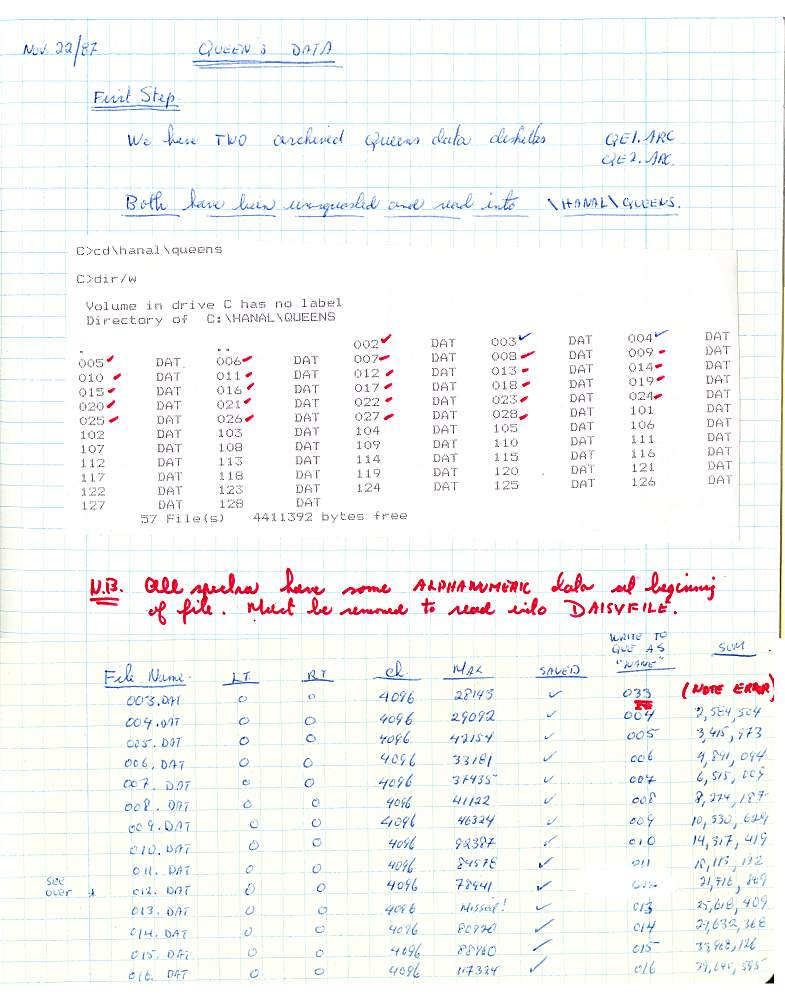 Nov. 22/87 QUEEN'S DATA
First Step.
We have TWO archived Queens data diskettes QE1.ARC
QE2.ARC.
Both have been unsquashed and read into \HANAL\QUEENS.
C>cd\hanal\queens
C>dir/w
Volume in drive C has no label
Directory of C:\HANAL\QUEENS
. .. 002✓ DAT 003✓ DAT 004✓ DAT
005✓ DAT 006✓ DAT 007✓ DAT 008✓ DAT 009✓ DAT
010✓ DAT 011✓ DAT 012✓ DAT 013✓ DAT 014✓ DAT
015✓ DAT 016✓ DAT 017✓ DAT 018✓ DAT 019✓ DAT
020✓ DAT 021✓ DAT 022✓ DAT 023✓ DAT 024✓ DAT
025✓ DAT 026✓ DAT 027✓ DAT 028✓ DAT 101 DAT
102 DAT 103 DAT 104 DAT 105 DAT 106 DAT
107 DAT 108 DAT 109 DAT 110 DAT 111 DAT
112 DAT 113 DAT 114 DAT 115 DAT 116 DAT
117 DAT 118 DAT 119 DAT 120 DAT 121 DAT
122 DAT 123 DAT 124 DAT 125 DAT 126 DAT
127 DAT 128 DAT
57 File(s) 4411392 bytes free
N.B. All spectra have some ALPHANUMERIC data at beginning
of file. Must be removed to read into DAISYFILE.
File Name. LT. RT. Ch. MAX SAVED WRITE TO QUE AS "NAME" SUM
003.DAT 0 0 4096 28143 ✓ 033 (NOTE ERROR)
004.DAT 0 0 4096 29092 ✓ 004 2,584,504
005.DAT 0 0 4096 42154 ✓ 005 3,415,973
006.DAT 0 0 4096 33181 ✓ 006 4,891,094
007.DAT 0 0 4096 37435 ✓ 007 6,515,009
008.DAT 0 0 4096 41122 ✓ 008 8,274,187
009.DAT 0 0 4096 46324 ✓ 009 10,530,629
010.DAT 0 0 4096 92387 ✓ 010 14,317,419
011.DAT 0 0 4096 84578 ✓ 011 18,115,192
see over 012.DAT 0 0 4096 78941 ✓ 21,716,869
013.DAT 0 0 4096 Missed! ✓ 013 25,618,409
014.DAT 0 0 4096 80920 ✓ 014 29,632,368
015.DAT 0 0 4096 88960 ✓ 015
016.DAT 0 0 4096 117324 ✓ 016